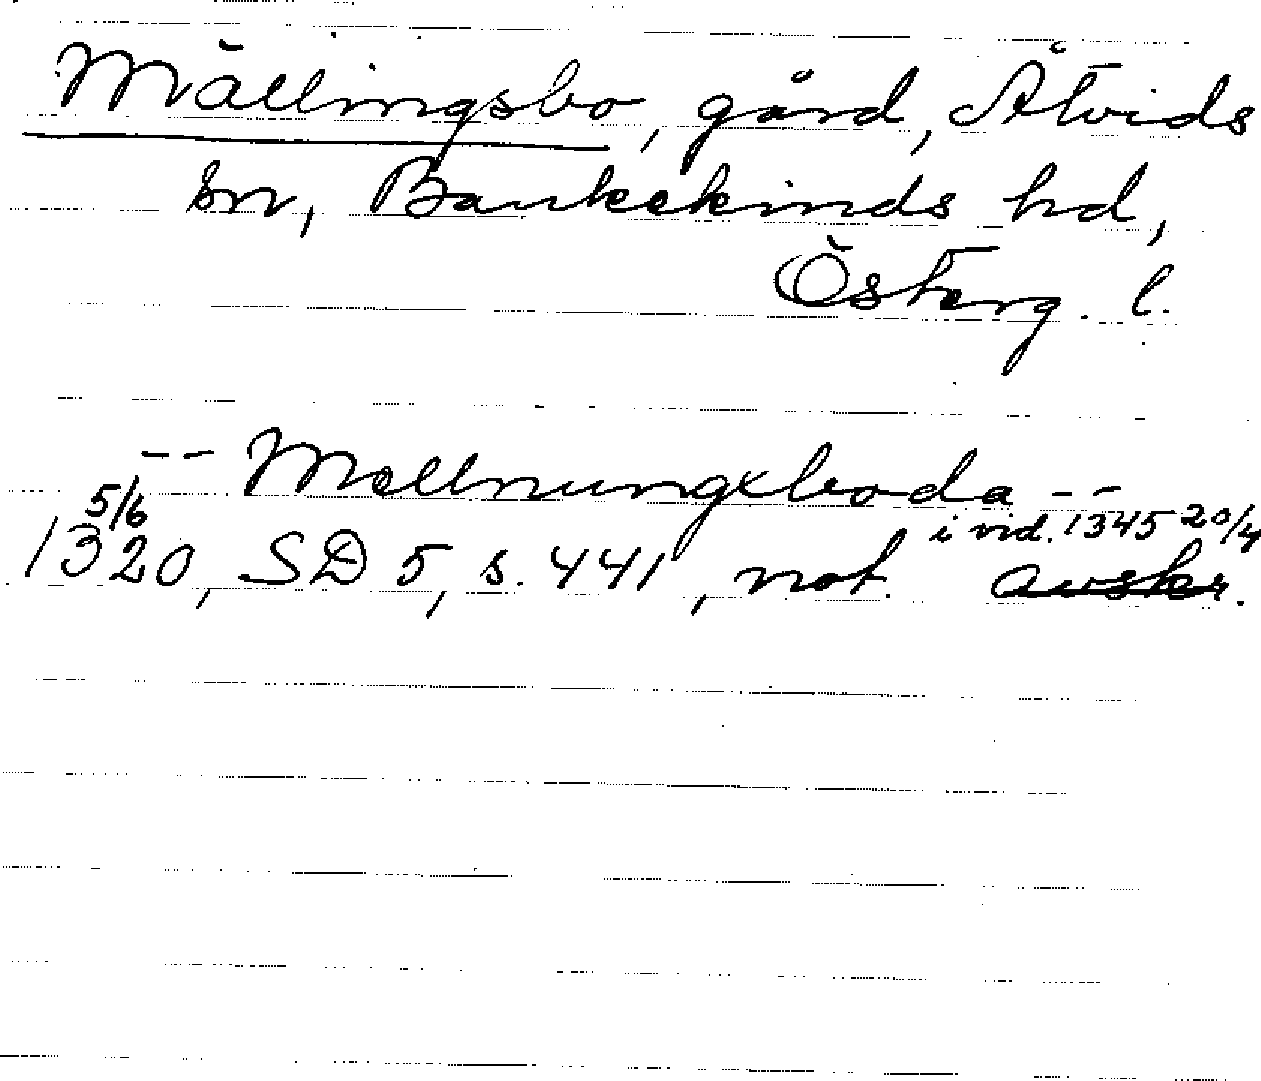 Mällingsbo, gård, Åtvids
sn, Bankekinds hd,
Österg. l.
-- Mellnungxboda --
5/6 i vid. 1345 20/4
1320, SD 5, s. 441, not. avskr.